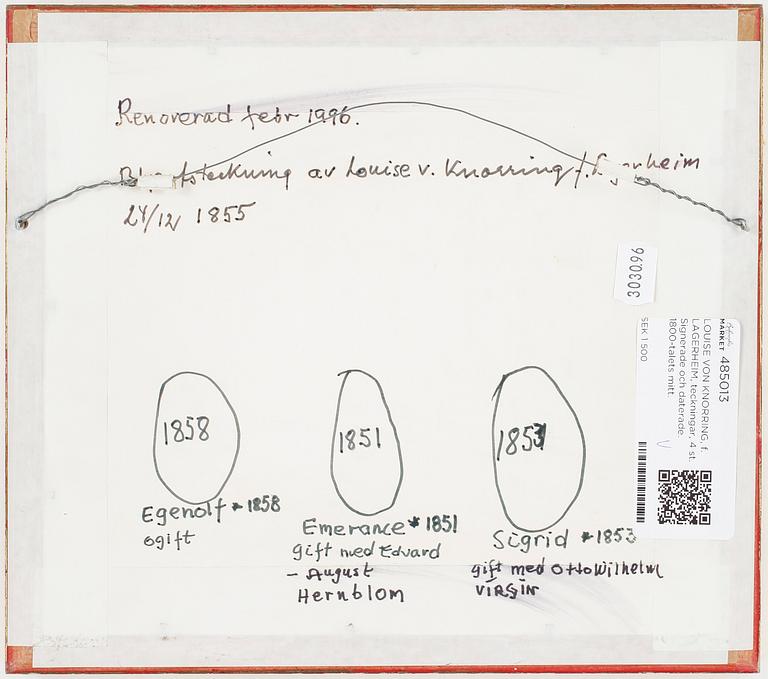 Renoverad febr 1996.
av Louise v. Knorring f.
24/12 1855
303096
MARKET 485013
LOUISE VON KNORRING, f.
LAGERHEIM, teckningar, 4 st.
Signerade och daterade
1800-talets mitt.
SEK 1 500
1858
1851
1853
Egenolf * 1858
ogift
Emerance * 1851
gift med Edvard
- August
Hernblom
Sigrid * 1853
gift med Otto Wilhelm
VIRGIN